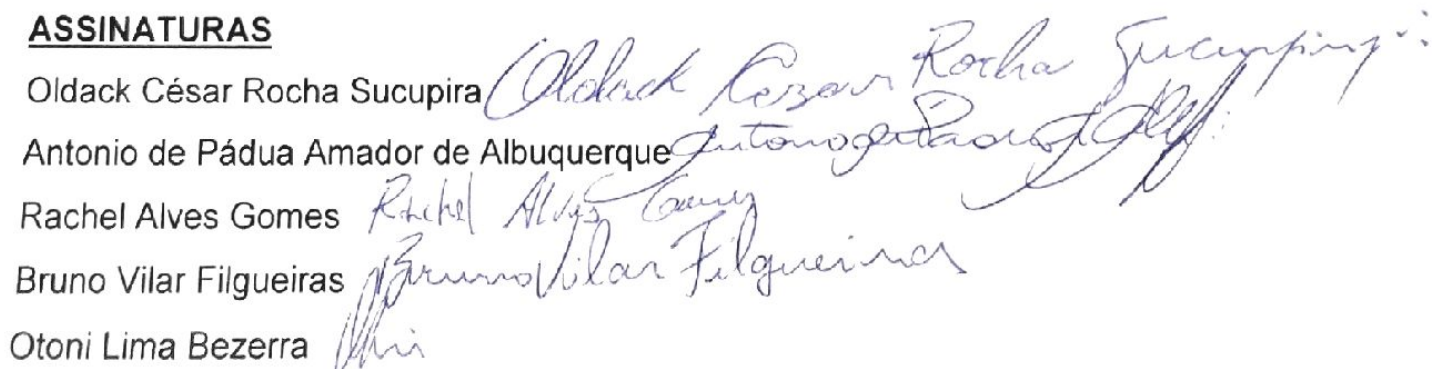 ASSINATURAS
Oldack César Rocha Sucupira Oldack Cezar Rocha Sucupira
Antonio de Pádua Amador de Albuquerque Antonio de Padua
Rachel Alves Gomes Rachel Alves Gomes
Bruno Vilar Filgueiras Bruno Vilar Filgueiras
Otoni Lima Bezerra